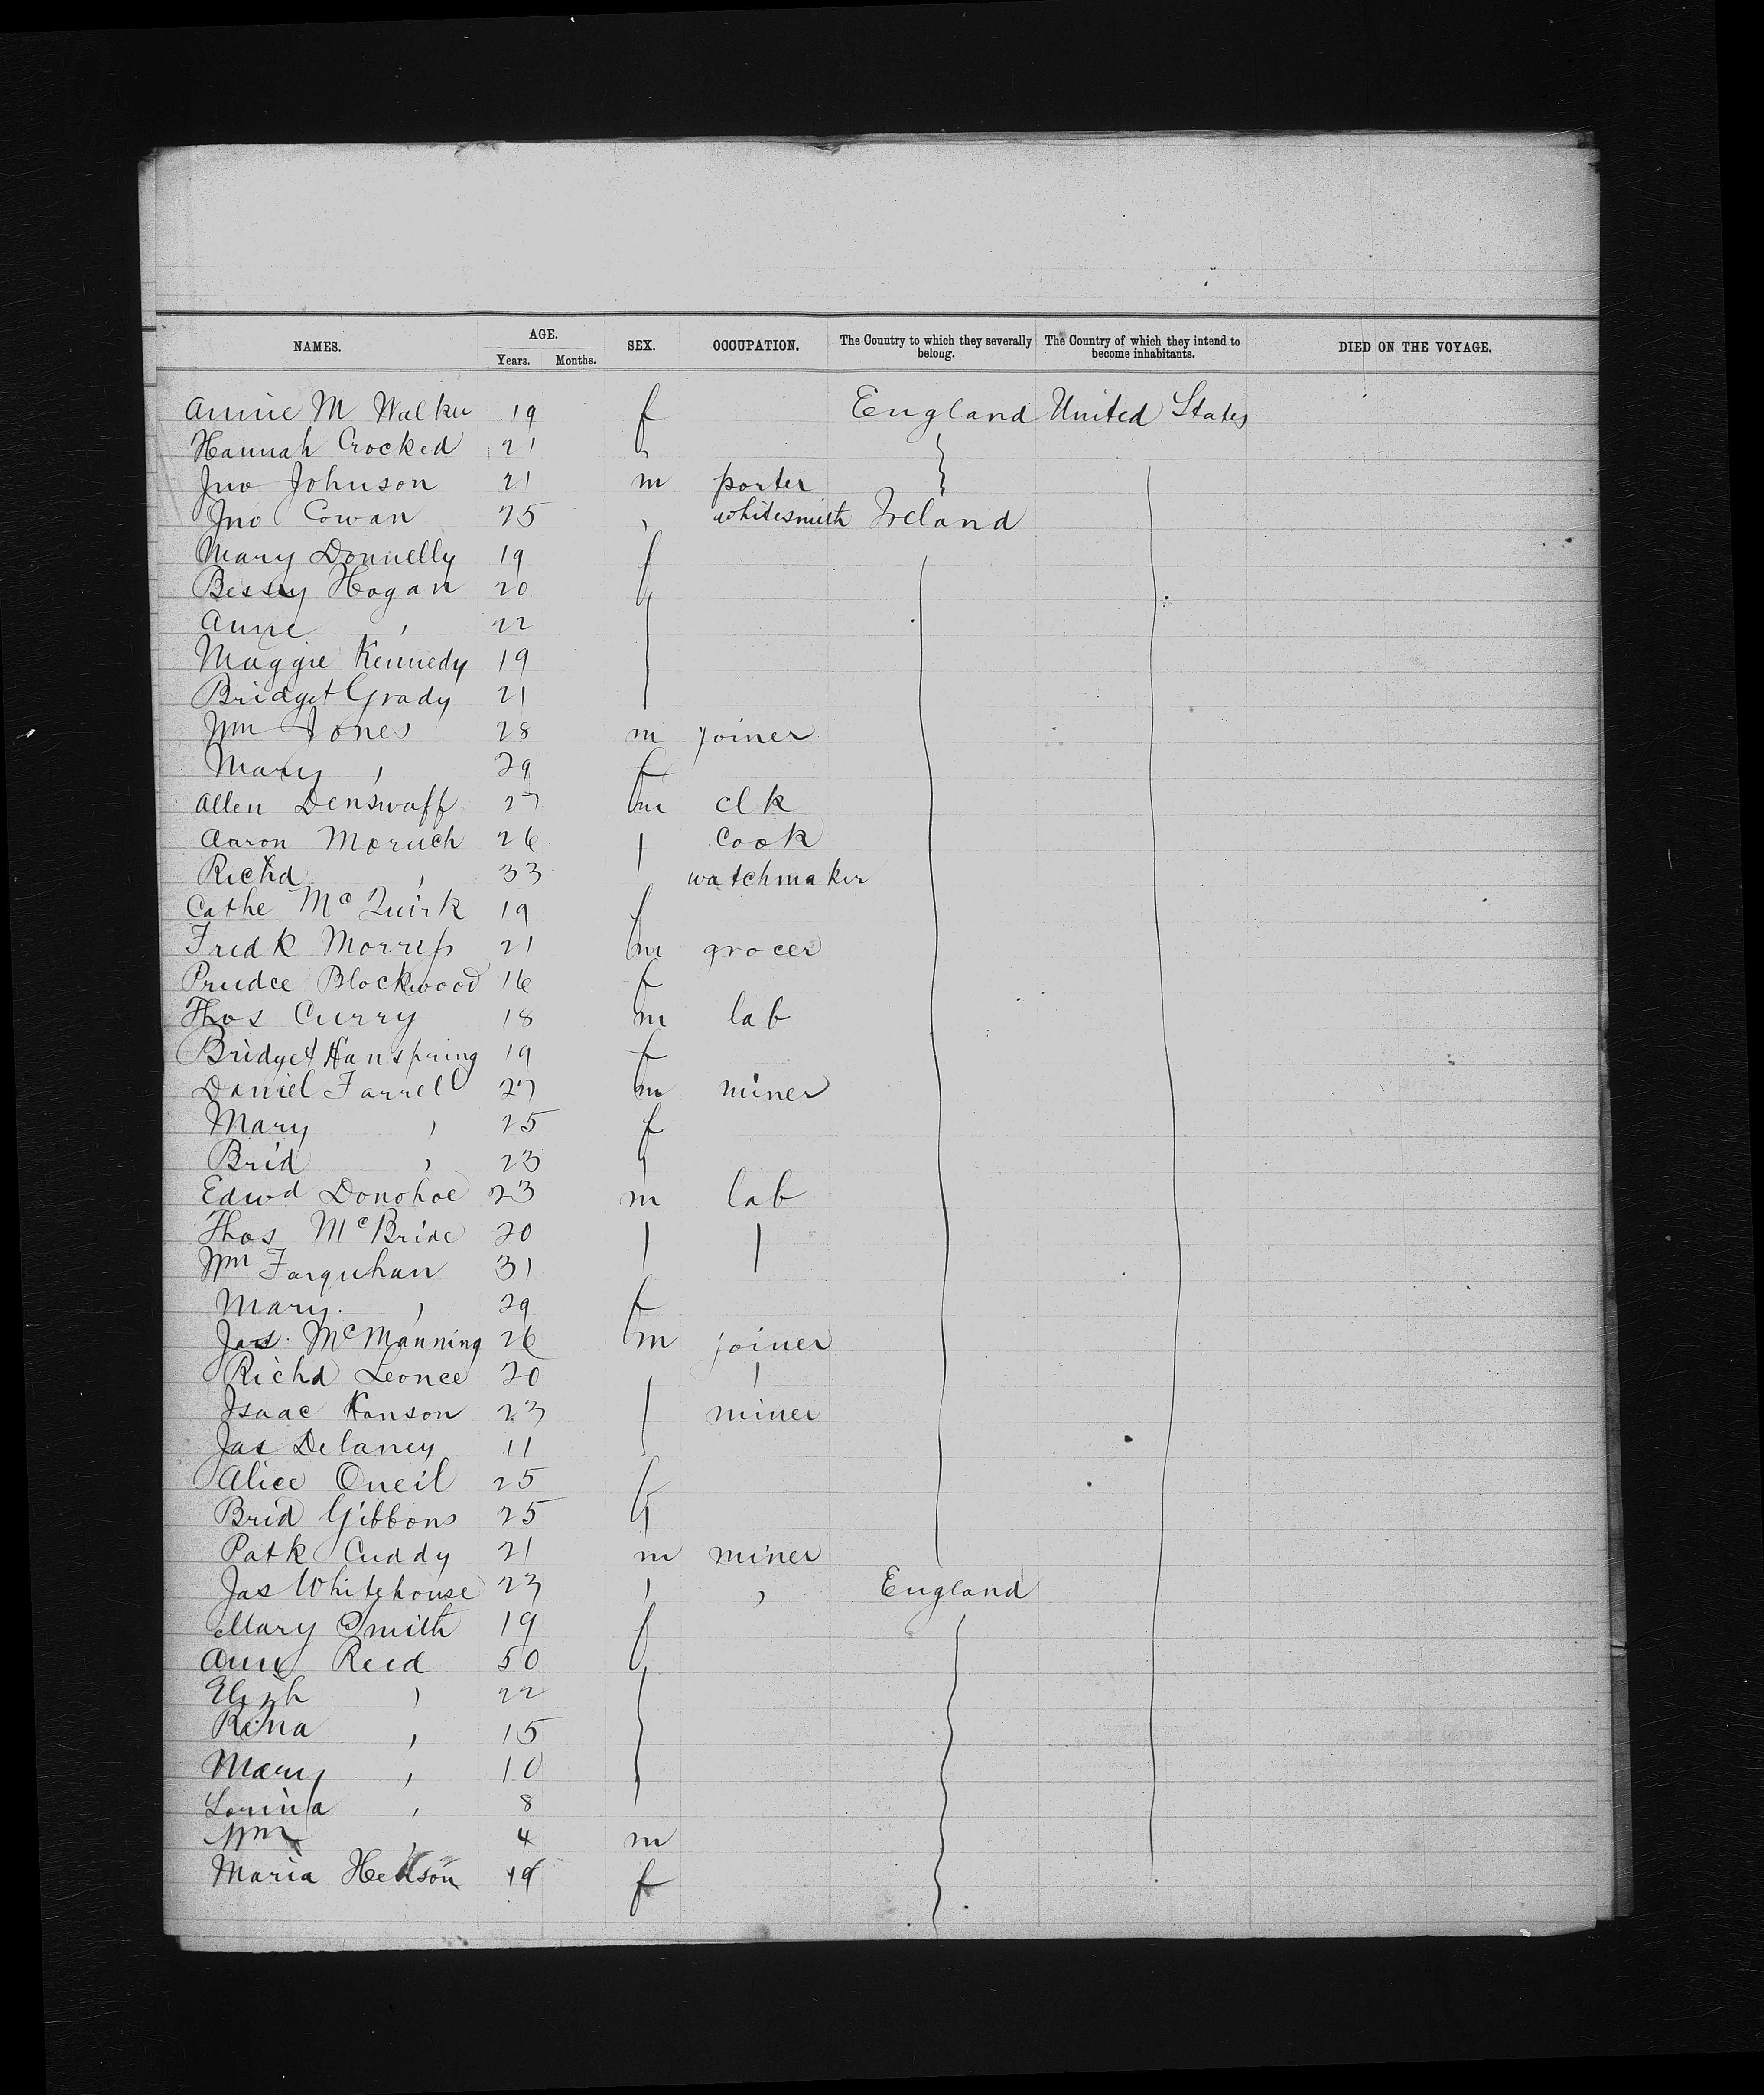 NAMES. AGE. SEX. OCCUPATION. The Country to which they severally belong. The Country of which they intend to become inhabitants. DIED ON THE VOYAGE.
Years. Months.
Annie M Walker 19 f England United States
Hannah Crocked 21
Jno Johnson 21 m porter
Jno Cowan 25 , whitesmith Ireland
Mary Donnelly 19 f
Bessy Hogan 20
Anne , 22
Maggie Kennedy 19
Bridget Grady 21
Wm Jones 28 m joiner
Mary , 29 f
Allen Denswaff 27 m clk
Aaron Moruch 26 cook
Richd , 33 watchmaker
Cathe McQuirk 19 f
Fredk Morriss 21 m grocer
Prudce Blockwood 16 f
Thos Curry 18 m lab
Bridget Hanspring 19 f
Daniel Farrell 27 m miner
Mary , 25 f
Brid , 23
Edwd Donohoe 23 m lab
Thos McBride 20
Wm Farquhan 31
Mary , 29 f
Jas. McManning 26 m joiner
Richd Leonce 20
Isaac Hanson 23 miner
Jas Delaney 11
Alice Oneil 25 f
Brid Gibbons 25
Patk Cuddy 21 m miner
Jas Whitehouse 23 , , England
Mary Smith 19 f
Ann Reed 50
Elizh , 22
, 15
Mary , 10
Lorina , 8
Wm , 4 m
Maria 19 f